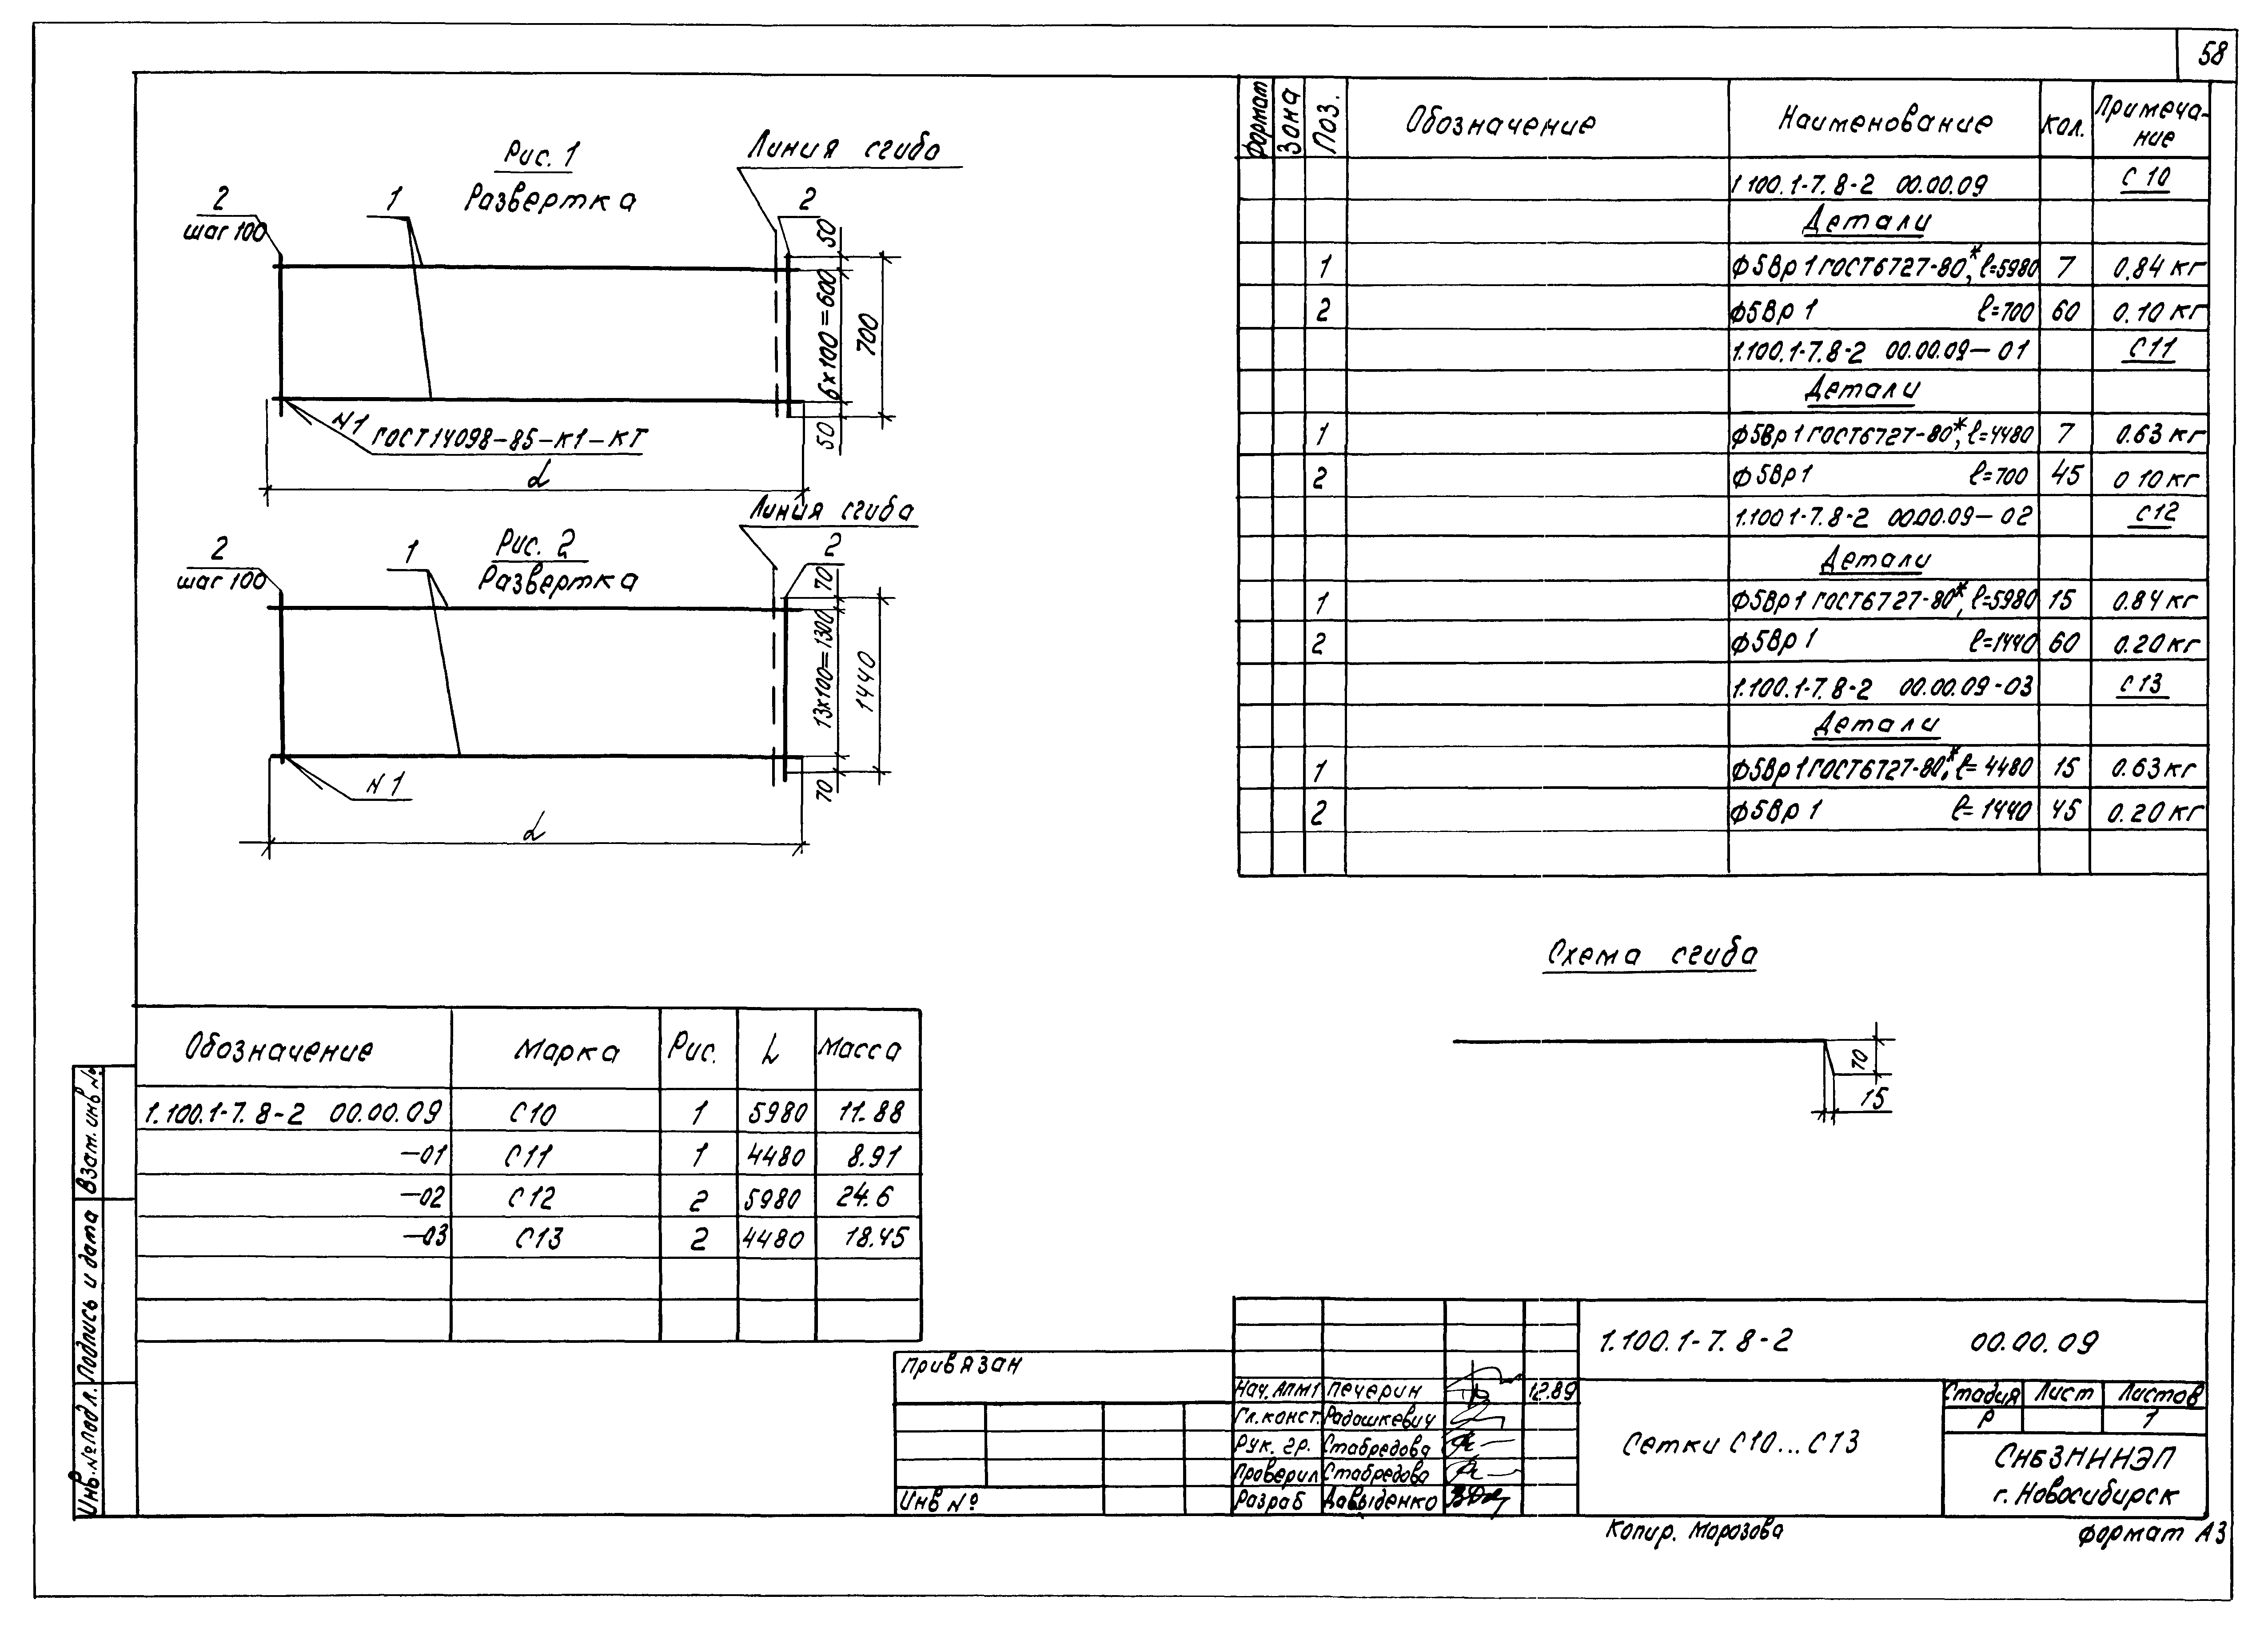 58
Рис. 1
Развертка
Линия сгиба
2
шаг 100
1
2
50
6х100=600
50
700
N1
ГОСТ14098-85-К1-КТ
L
Рис. 2
Развертка
Линия сгиба
2
шаг 100
1
2
70
13х100=1300
70
1440
N1
L
Формат Зона Поз. Обозначение Наименование Кол. Примеча-
ние
1.100.1-7.8-2 00.00.09 С10
Детали
1 ф5Вр1 ГОСТ6727-80*, ℓ=5980 7 0.84 кг
2 ф5Вр1 ℓ=700 60 0.10 кг
1.100.1-7.8-2 00.00.09-01 С11
Детали
1 ф5Вр1 ГОСТ6727-80*, ℓ=4480 7 0.63 кг
2 ф5Вр1 ℓ=700 45 0 10 кг
1.100 1-7.8-2 00.00.09-02 С12
Детали
1 ф5Вр1 ГОСТ6727-80*, ℓ=5980 15 0.84 кг
2 ф5Вр1 ℓ=1440 60 0.20 кг
1.100.1-7.8-2 00.00.09-03 С13
Детали
1 ф5Вр1 ГОСТ6727-80*, ℓ=4480 15 0.63 кг
2 ф5Вр1 ℓ=1440 45 0.20 кг
Схема сгиба
70
15
Обозначение Марка Рис. L Масса
1.100.1-7.8-2 00.00.09 С10 1 5980 11.88
-01 С11 1 4480 8.91
-02 С12 2 5980 24.6
-03 С13 2 4480 18.45
Взам. инв №
Подпись и дата
Инв.№ подл.
Привязан
Инв №
Нач. АПМ1 Печерин 12.89
Гл. конст. Радашкевич
Рук. гр. Стабредова
Проверил Стабредова
Разраб Давыденко
1.100.1-7.8-2 00.00.09
Сетки С10...С13
Стадия Лист Листов
Р 1
СибЗНИИЭП
г. Новосибирск
Копир. Морозова
формат А3